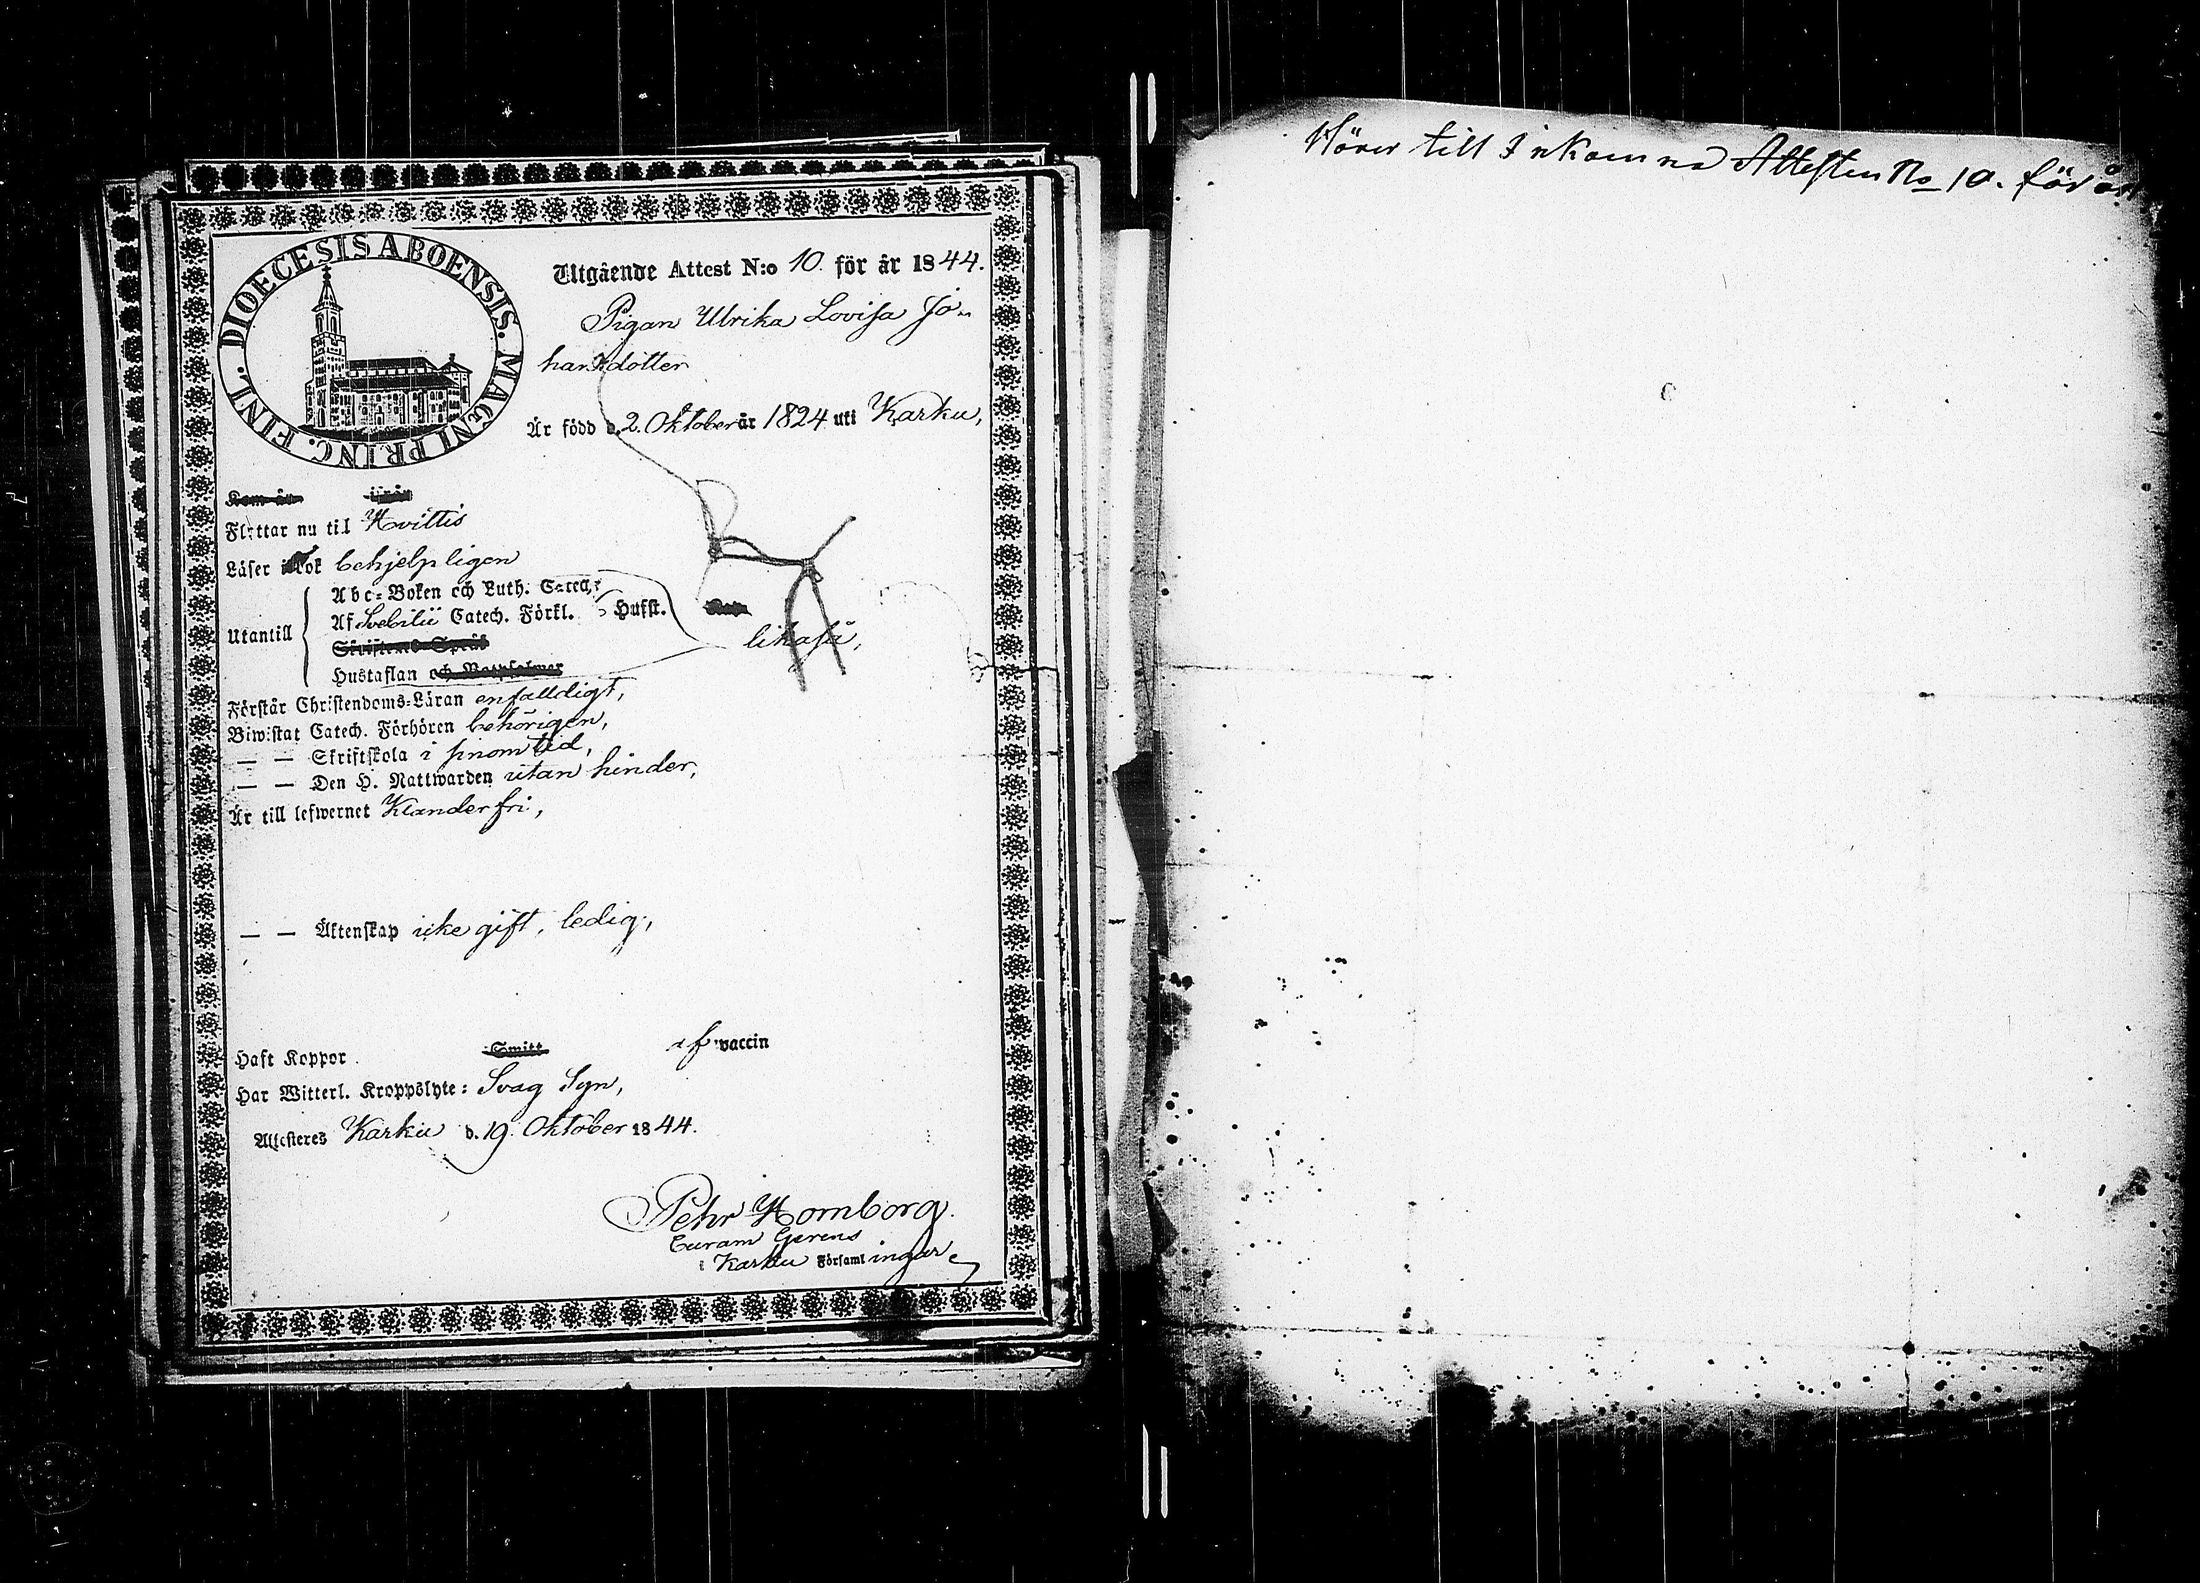 DIOECESIS ABOENSIS. MAGNI PRINC. FINL.
Utgående Attest N:o 10. för år 1844.
Pigan Ulrika Lovisa Jo-
hansdotter
Är född d. 2. Oktober år 1824 uti Karku,
Flyttar nu til Hvittis
Läser i Bok behjelpligen
Abc-Boken och Luth. Catech.
Utantill Af Svebilii Catech. Förkl. Husst.
likaså,
Hustaflan och
Förstår Christendoms-Läran enfalldigt,
Biwistat Catech. Förhören behörigen,
— — Skriftskola i sinom tid,
— — Den H. Nattwarden utan hinder,
Är till lefwernet Klanderfri,
— — Äktenskap icke gift, ledig,
Haft Koppor Smitt af vaccin
Har Witterl. Kroppslyte: Svag Syn,
Attesteres Karku d. 19. Oktober 1844.
Pehr Homborg.
Curam Gerens
i Karku Församlingar
Hörer till Inkomna Attesten No 10. för år